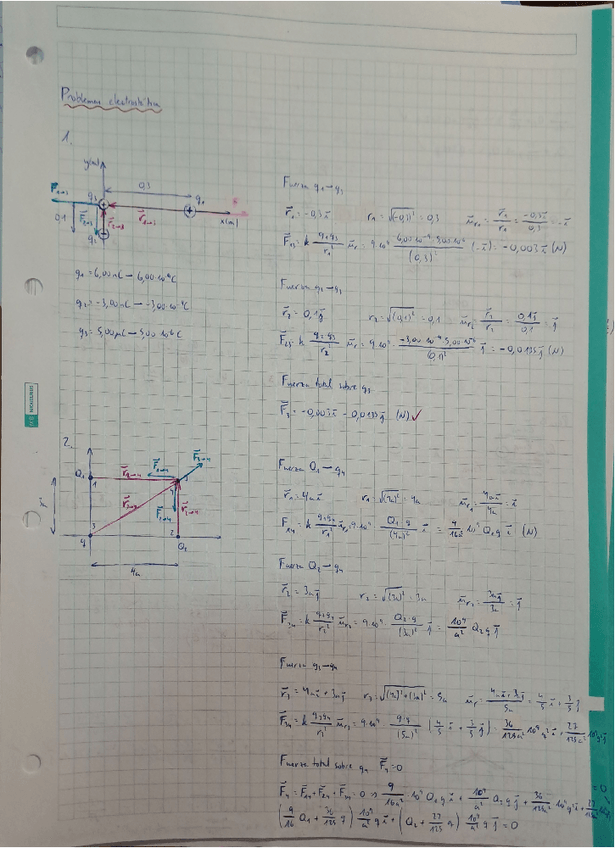 Problemas electrostática
1.
y(m)
0,3
q₃
q₁
x(m)
0,1
q₂
q₁ = 6,00 nC → 6,00·10⁻⁹C
q₂ = -3,00 nC → -3,00·10⁻⁹C
q₃ = 5,00 μC → 5,00·10⁻⁶C
Fuerza q₁→q₃
r₁ = -0,3 i    r₁ = √(-0,3)² = 0,3    u_r₁ = r₁/r₁ = -0,3 i/0,3 = -i
F₁₃ = k q₁q₃/r₁² u_r₁ = 9·10⁹ 6,00·10⁻⁹·5,00·10⁻⁶/(0,3)² (-i) = -0,003 i (N)
Fuerza q₂→q₃
r₂ = 0,1 j    r₂ = √(0,1)² = 0,1    u_r₂ = r₂/r₂ = 0,1 j/0,1 = j
F₂₃ = k q₂q₃/r₂² u_r₂ = 9·10⁹ · -3,00·10⁻⁹·5,00·10⁻⁶/(0,1)² j = -0,0135 j (N)
Fuerza total sobre q₃
F₃ = -0,003 i - 0,0135 j (N) ✓
2.
Q₁
1
4
3
q
2
Q₂
4a
Fuerza Q₁→q₄
r₁ = 4a i    r₁ = √(4a)² = 4a    u_r₁ = 4a i/4a = i
F₁₄ = k q₁q₄/r₁² u_r₁ = 9·10⁹ Q₁·q/(4a)² i = 9/16a² 10⁹ Q₁q i (N)
Fuerza Q₂→q₄
r₂ = 3a j    r₂ = √(3a)² = 3a    u_r₂ = 3a j/3a = j
F₂₄ = k q₂q₄/r₂² u_r₂ = 9·10⁹ Q₂·q/(3a)² j = 10⁹/a² Q₂q j
Fuerza q₃→q₄
r₃ = 4a i + 3a j    r₃ = √(4a)²+(3a)² = 5a    u_r = 4a i + 3a j/5a = 4/5 i + 3/5 j
F₃₄ = k q₃q₄/r₃² u_r₃ = 9·10⁹ q·q/(5a)² (4/5 i + 3/5 j) = 36/125a² 10⁹ q² i + 27/125a² 10⁹ q² j
Fuerza total sobre q₄ F₄ = 0
F₄ = F₁₄ + F₂₄ + F₃₄ = 0 ⇒ 9/16a² 10⁹ Q₁q i + 10⁹/a² Q₂q j + 36/125a² 10⁹ q² i + 27/125a² = 0
(9/16 Q₁ + 36/125 q) 10⁹/a² q i + (Q₂ + 27/125 q) 10⁹/a² q j = 0